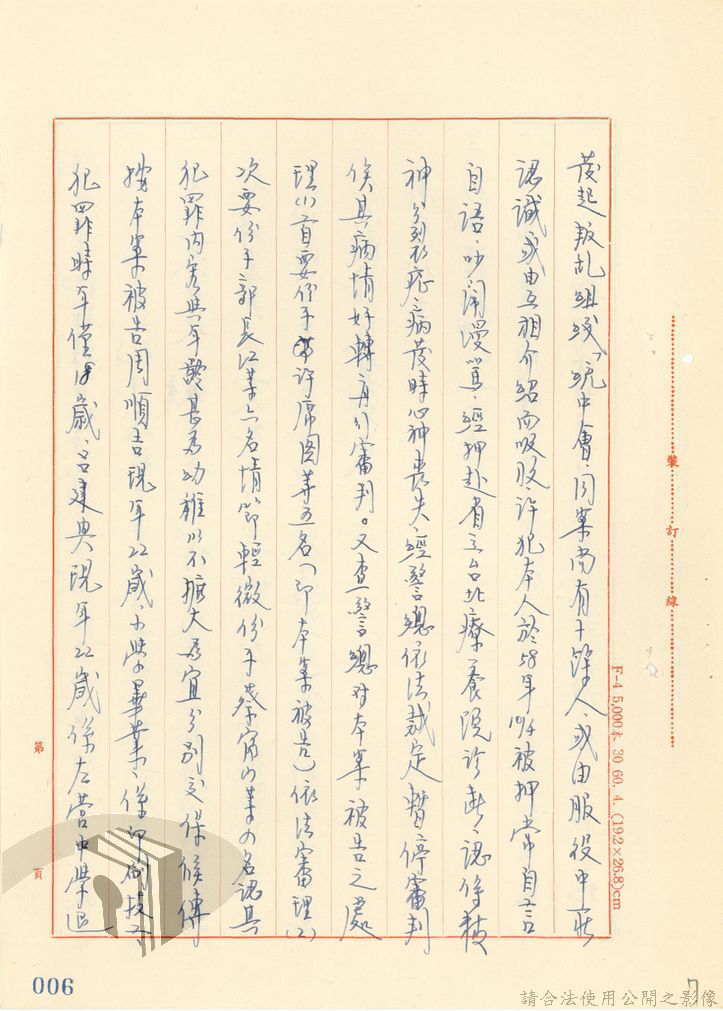 發起叛乱組織「統中會」同案尚有十餘人、或由服役中所
認識或由互相介紹而吸收、許犯本人於58年10/4被押常自言
自語、吵鬧漫罵、經押赴省立台北療養院診斷、認係精
神分裂症、病發時心神喪失、經警總依法裁定暫停審判
俟其病情好轉再行審判。又查警總对本案被告之處
理(1)首要份子許席圖等五名(即本案被告)依法審理(2)
次要份子郭長江等六名情節輕微份子蔡 等 名認其
犯罪內容與年齡甚為幼稚以不擴大為宜分別交保候傳
據本案被告周順吉現年22歲、小學畢業、係印刷技工、
犯罪時年僅18歲、呂建興現年22歲係左營中學退
裝 訂 線
F-4 5,000本 30 60. 4. (19.2×26.8)cm
第 頁
006
7
請合法使用公開之影像